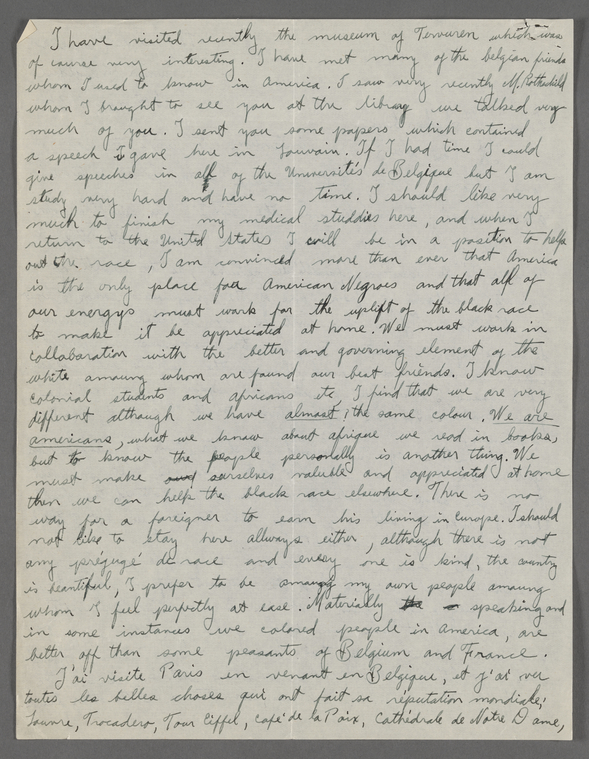 I have visited recently the museum of Tervuren which was
of course very interesting. I have met many of the belgian friends
whom I used to know in America. I saw very recently M. Rothschild
whom I brought to see you at the library we talked very
much of you. I sent you some papers which contained
a speech I gave here in Louvain. If I had time I could
give speeches in all of the Universités de Belgique but I am
study very hard and have no time. I should like very
much to finish my medical studdies here, and when I
return to the United States I will be in a position to help
out the race, I am convinced more than ever that America
is the only place for American Negroes and that all of
our energys must work for the uplift of the black race
to make it be appreciated at home. We must work in
collaboration with the better and governing element of the
white amoung whom are found our best friends. I know
colonial students and africans etc, I find that we are very
different although we have almost the same colour. We are
americans, what we know about afrique we read in books,
but to know the people personally is another thing. We
must make ourselves valuble and appreciated at home
then we can help the black race elsewhere. There is no
way for a foreigner to earn his living in Europe. I should
not like to stay here allways either, although there is not
any préjugé de race and every one is kind, the country
is beautiful, I prefer to be among my own people amoung
whom I feel perfectly at ease. Materially speaking and
in some instances we colored people in America, are
better off than some peasants of Belgium and France.
J'ai visite Paris en venant en Belgique, et j'ai vu
toutes les belles choses qui ont fait sa réputation mondiale;
Louvre, Trocadero, Tour Eiffel, Café de la Paix, Cathédrale de Notre Dame,